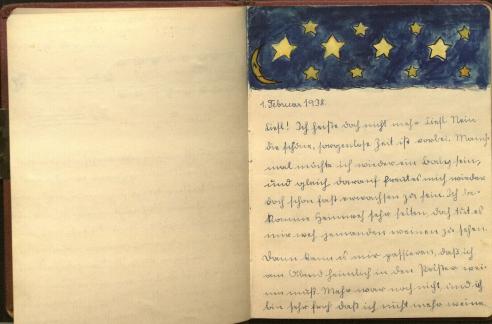 1. Februar 1938.
Liesl! Ich heiße doch nicht mehr Liesl. Nein
die schöne, sorgenlose Zeit ist vorbei. Manch-
mal möchte ich wieder ein Baby sein,
und gleich darauf freut es mich wieder
doch schon fast erwachsen zu sein. Ich be-
komme Heimweh sehr selten, doch tut es
mir weh jemanden weinen zu sehen.
Dann kann es mir passieren, daß ich
am Abend heimlich in den Polster wei-
nen muß. Mehr war noch nicht, und ich
bin sehr froh daß ich nicht mehr weine